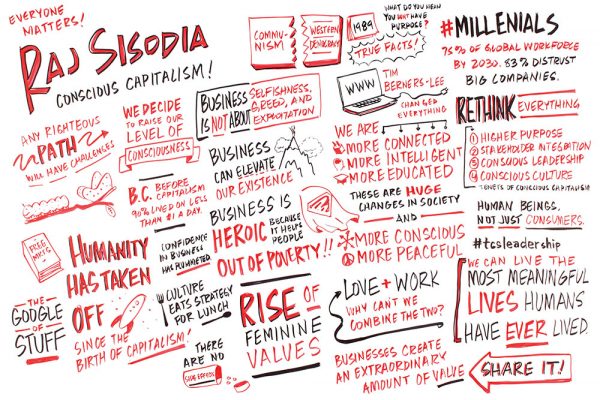 EVERYONE
MATTERS!
RAJ SISODIA
CONSCIOUS CAPITALISM!
ANY RIGHTEOUS
PATH
WILL HAVE CHALLENGES
WE DECIDE
TO RAISE OUR
LEVEL OF
CONSCIOUSNESS
B.C. BEFORE
CAPITALISM
90% LIVED ON LESS
THAN $1 A DAY.
FREE
MKTS
HUMANITY
HAS TAKEN
OFF
SINCE THE
BIRTH OF CAPITALISM!
THE
GOOGLE
OF
STUFF
CONFIDENCE
IN BUSINESS
HAS PLUMMETED.
CULTURE
EATS STRATEGY
FOR LUNCH
THERE
ARE NO
SIDE EFFECTS
COMMU-
NISM
WESTERN
DEMOCRACY
1989
WHAT DO YOU MEAN
YOU DON'T HAVE
PURPOSE?
TRUE FACTS!
BUSINESS
IS NOT ABOUT
SELFISHNESS,
GREED, AND
EXPLOITATION
BUSINESS
CAN ELEVATE
OUR EXISTENCE
BUSINESS IS
HEROIC BECAUSE
IT HELPS
PEOPLE
OUT OF POVERTY!!
RISE OF
FEMININE
VALUES
WWW
TIM
BERNERS-LEE
CHANGED
EVERYTHING
WE ARE
MORE CONNECTED
MORE INTELLIGENT
MORE EDUCATED
THESE ARE HUGE
CHANGES IN SOCIETY
AND
MORE CONSCIOUS
MORE PEACEFUL
LOVE + WORK
WHY CAN'T WE
COMBINE THE TWO?
BUSINESSES CREATE
AN EXTRAORDINARY
AMOUNT OF VALUE
#MILLENIALS
75% OF GLOBAL WORKFORCE
BY 2030. DISTRUST
BIG COMPANIES.
RETHINK EVERYTHING
1 HIGHER PURPOSE
2 STAKEHOLDER INTEGRATION
3 CONSCIOUS LEADERSHIP
4 CONSCIOUS CULTURE
TENETS OF CONSCIOUS CAPITALISM
HUMAN BEINGS,
NOT JUST CONSUMERS.
#tcsleadership
WE CAN LIVE THE
MOST MEANINGFUL
LIVES HUMANS
HAVE EVER LIVED.
SHARE IT!